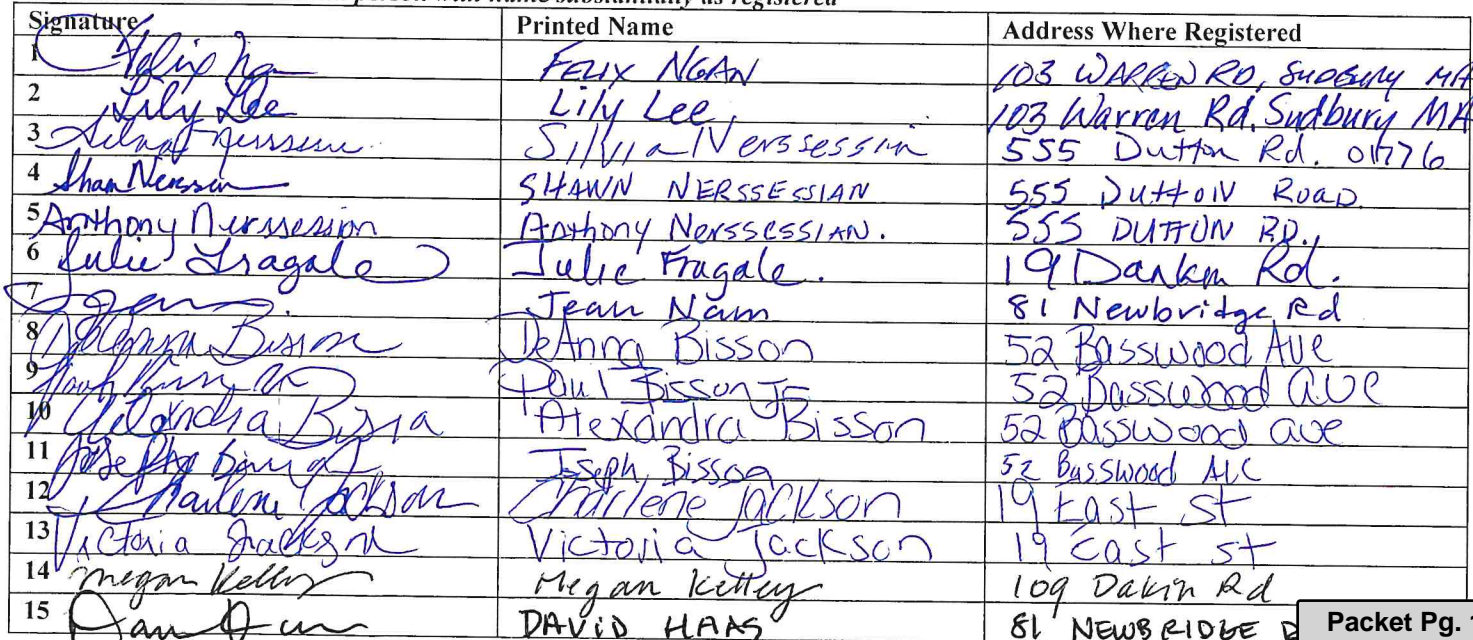 name substantially as registered
Signature Printed Name Address Where Registered
1 Felix Ngan FELIX NGAN 103 WARREN RD, SUDBURY MA
2 Lily Lee Lily Lee 103 Warren Rd. Sudbury MA
3 Silvia Nerssessian 555 Dutton Rd. 01776
4 Shawn SHAWN NERSSESSIAN 555 DUTTON ROAD
5 Anthony Nerssession Anthony NERSSESSIAN. 555 DUTTON RD.,
6 Julie Fragale Julie Fragale. 19 Rd.
7 Jean Nam 81 Newbridge Rd
8 DeAnna Bisson DeAnna Bisson 52 Basswood AVE
9 Paul Bisson Jr 52 Basswood ave
10 Alexandra Alexandra Bisson 52 Basswood ave
11 Joseph Bisson 52 Basswood
12 Charlene Jackson Charlene Jackson 19 East St
13 Victoria Jackson Victoria Jackson 19 East st
14 Megan Kelley Megan Kelley 109 Dakin Rd
15 DAVID HAAS 81 NEWBRIDGE
Packet Pg.